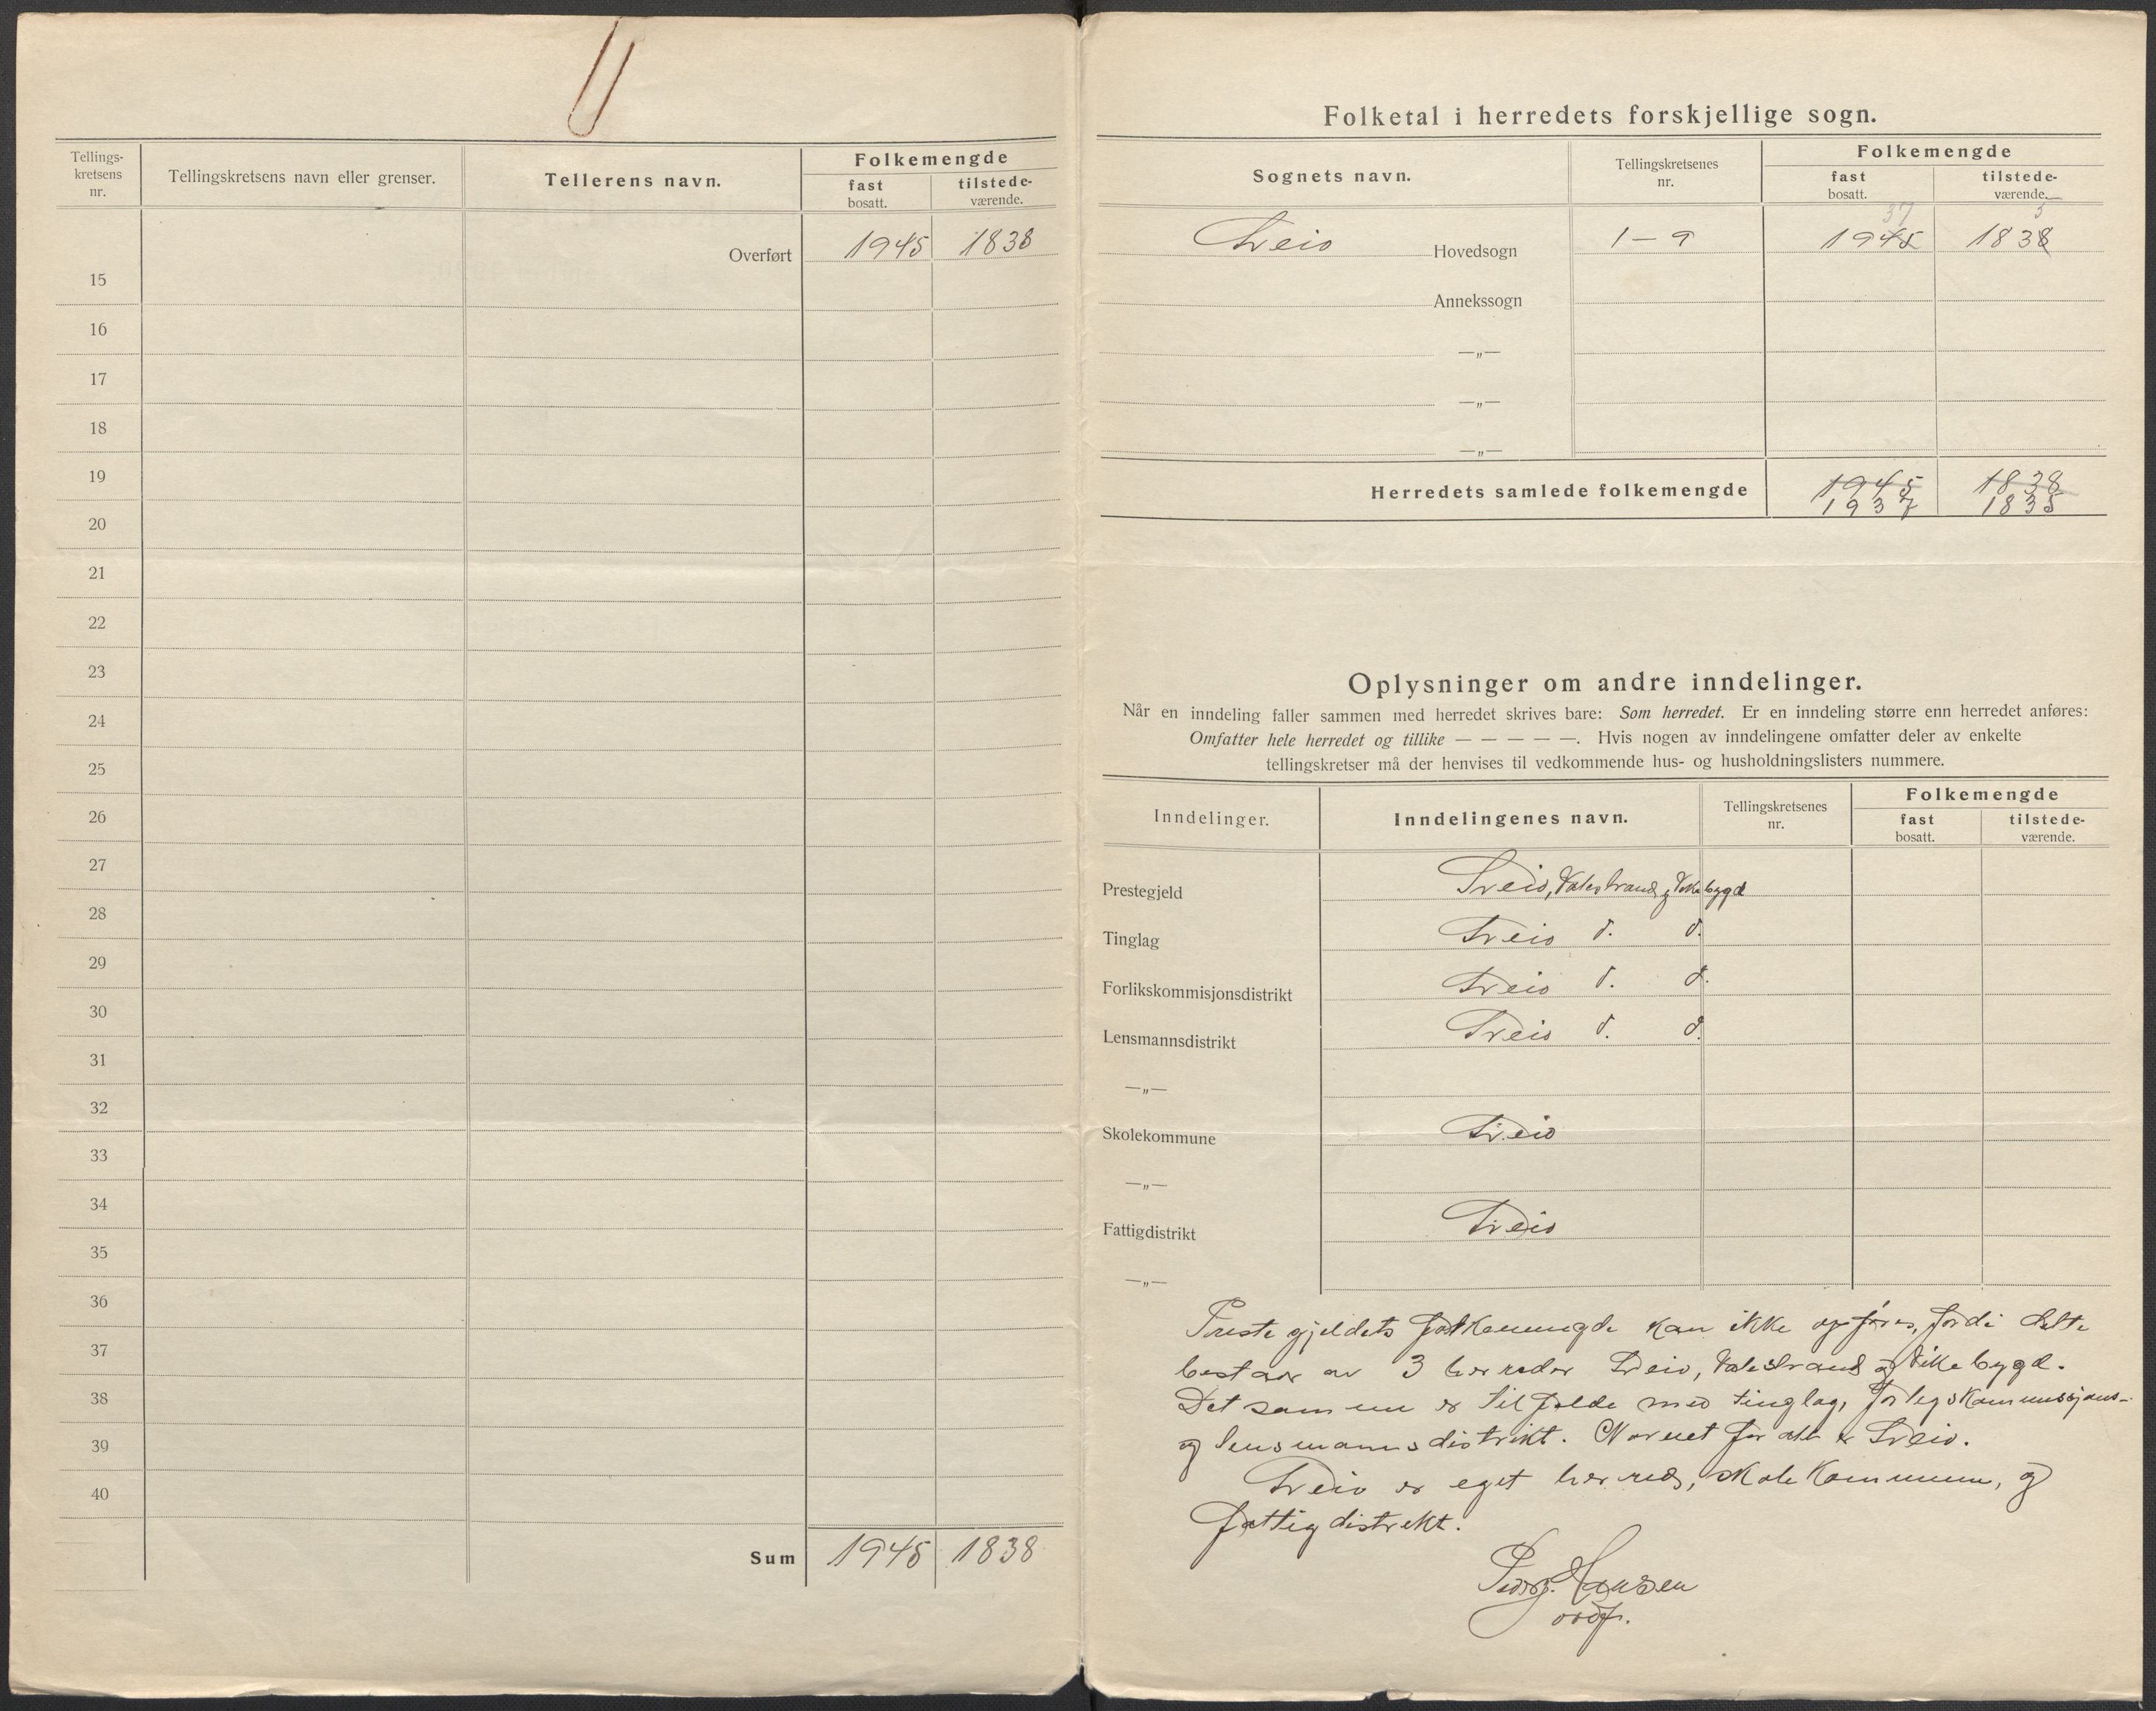 Tellings-
kretsens
nr.
Tellingskretsens navn eller grenser.
Tellerens navn.
Folkemengde
fast
bosatt.
tilstede-
værende.
Overført 1945 1838
15
16
17
18
19
20
21
22
23
24
25
26
27
28
29
30
31
32
33
34
35
36
37
38
39
40
Sum 1945 1838
Folketal i herredets forskjellige sogn.
Sognets navn.
Tellingskretsenes
nr.
Folkemengde
fast
bosatt.
tilstede-
værende.
37 5
Sveio Hovedsogn 1-9 1945 1838
Annekssogn
—„—
—„—
—„—
Herredets samlede folkemengde 1945 1838
1937 1835
Oplysninger om andre inndelinger.
Når en inndeling faller sammen med herredet skrives bare: Som herredet. Er en inndeling større enn herredet anføres:
Omfatter hele herredet og tillike — — — — —. Hvis nogen av inndelingene omfatter deler av enkelte
tellingskretser må der henvises til vedkommende hus- og husholdningslisters nummere.
Inndelinger.
Inndelingenes navn.
Tellingskretsenes
nr.
Folkemengde
fast
bosatt.
tilstede-
værende.
Prestegjeld Sveio, Valestrand og Vikebygd
Tinglag Sveio d. d.
Forlikskommisjonsdistrikt Sveio d. d.
Lensmannsdistrikt Sveio d. d.
—„—
Skolekommune Sveio
—„—
Fattigdistrikt Sveio
—„—
Prestegjeldets folkemengde kan ikke opføres, fordi dette
bestaar av 3 herreder Sveio, Valestrand og Vikebygd.
Det samme er tilfelde med tinglag, forligskommissjons-
og lensmannsdistrikt. Navnet for alle er Sveio.
Sveio er eget herred, skolekommune, og
fattigdistrikt.
Hansen
ordf.